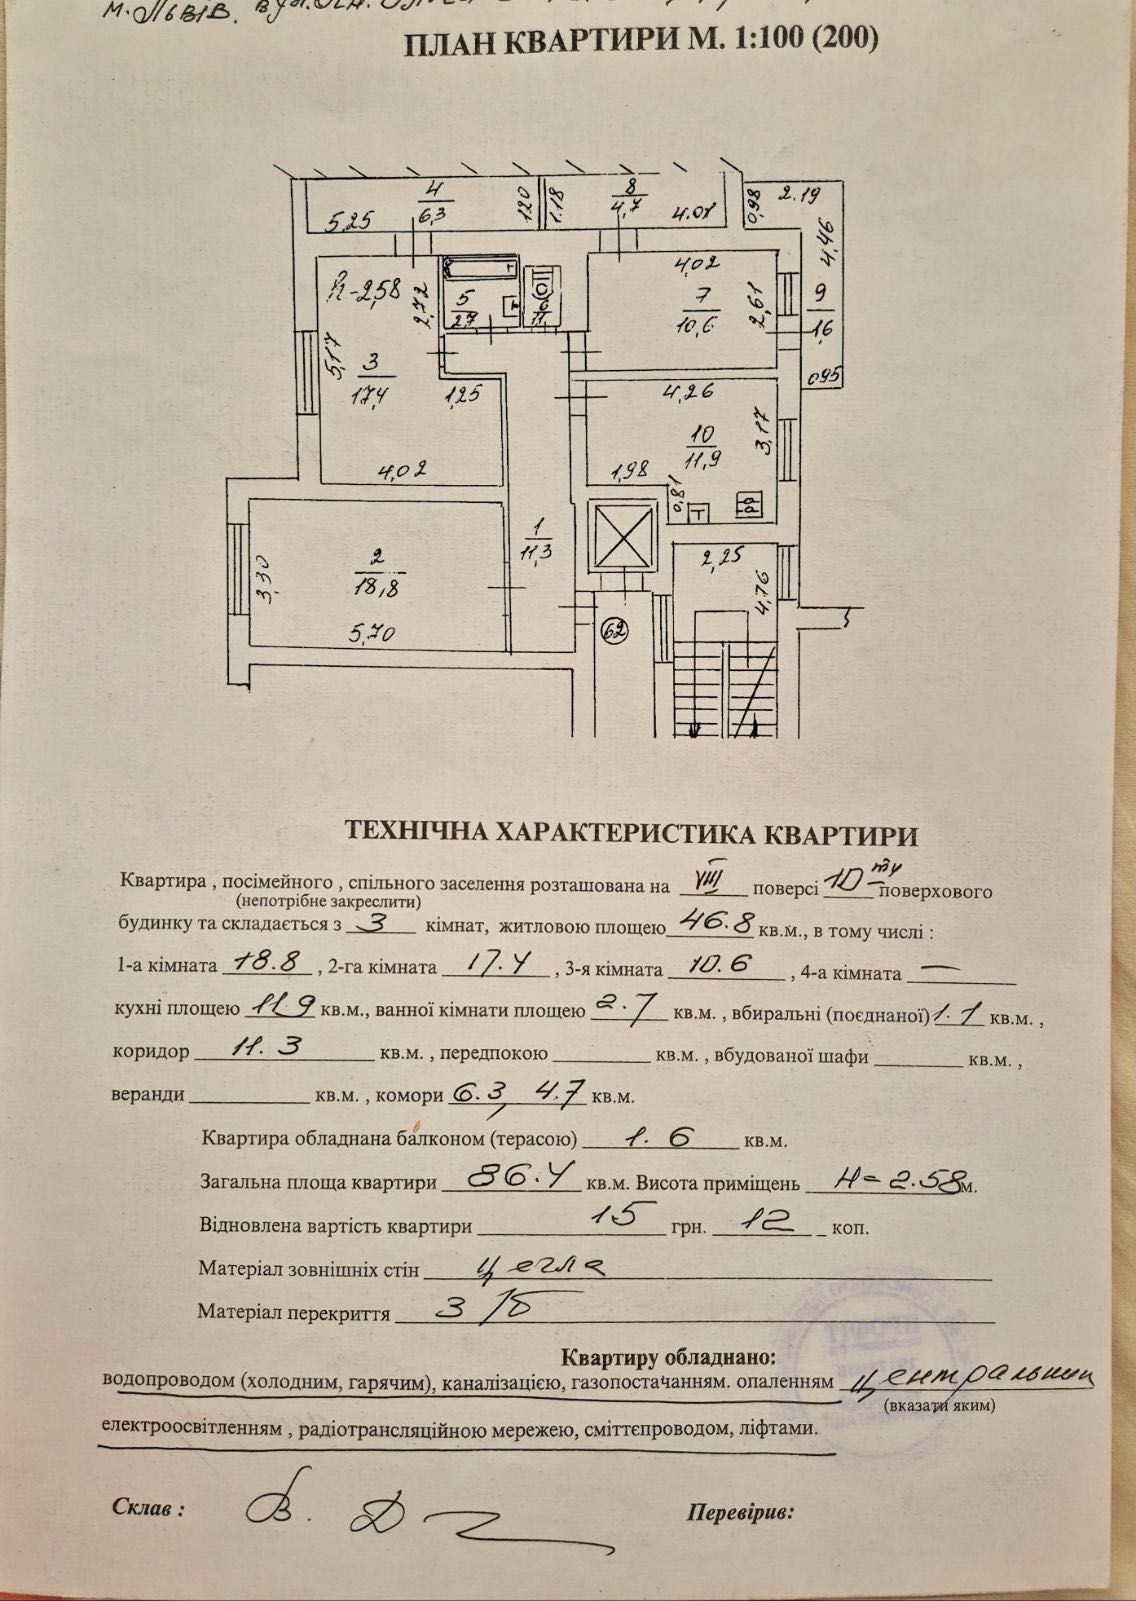 м. Львів. вул.
ПЛАН КВАРТИРИ М. 1:100 (200)
4
6,3
5.25
1.20
1.18
8
4.7
4.08
0,98
2.19
4,46
h-2,58
2,72
5
2.7
6
1.1
4,02
7
10.6
2,61
9
1.6
0.95
5,17
3
17,4
1,25
4,02
4,26
10
11,9
3,17
1,98
0,81
1
11,3
2
18,8
3,30
5,70
2,25
4,76
62
ТЕХНІЧНА ХАРАКТЕРИСТИКА КВАРТИРИ
Квартира , посімейного , спільного заселення розташована на VIII поверсі 10 ти поверхового
(непотрібне закреслити)
будинку та складається з 3 кімнат, житловою площею 46.8 кв.м., в тому числі :
1-а кімната 18.8 , 2-га кімната 17.4 , 3-я кімната 10.6 , 4-а кімната —
кухні площею 11.9 кв.м., ванної кімнати площею 2.7 кв.м. , вбиральні (поєднаної) 1.1 кв.м. ,
коридор 11.3 кв.м. , передпокою кв.м. , вбудованої шафи кв.м. ,
веранди кв.м. , комори 6.3, 4.7 кв.м.
Квартира обладнана балконом (терасою) 1.6 кв.м.
Загальна площа квартири 86.4 кв.м. Висота приміщень H= 2.58 м.
Відновлена вартість квартири 15 грн. 12 коп.
Матеріал зовнішніх стін цегла
Матеріал перекриття з/б
Квартиру обладнано:
водопроводом (холодним, гарячим), каналізацією, газопостачанням. опаленням центральним
(вказати яким)
електроосвітленням , радіотрансляційною мережею, сміттєпроводом, ліфтами.
Склав :
Перевірив: